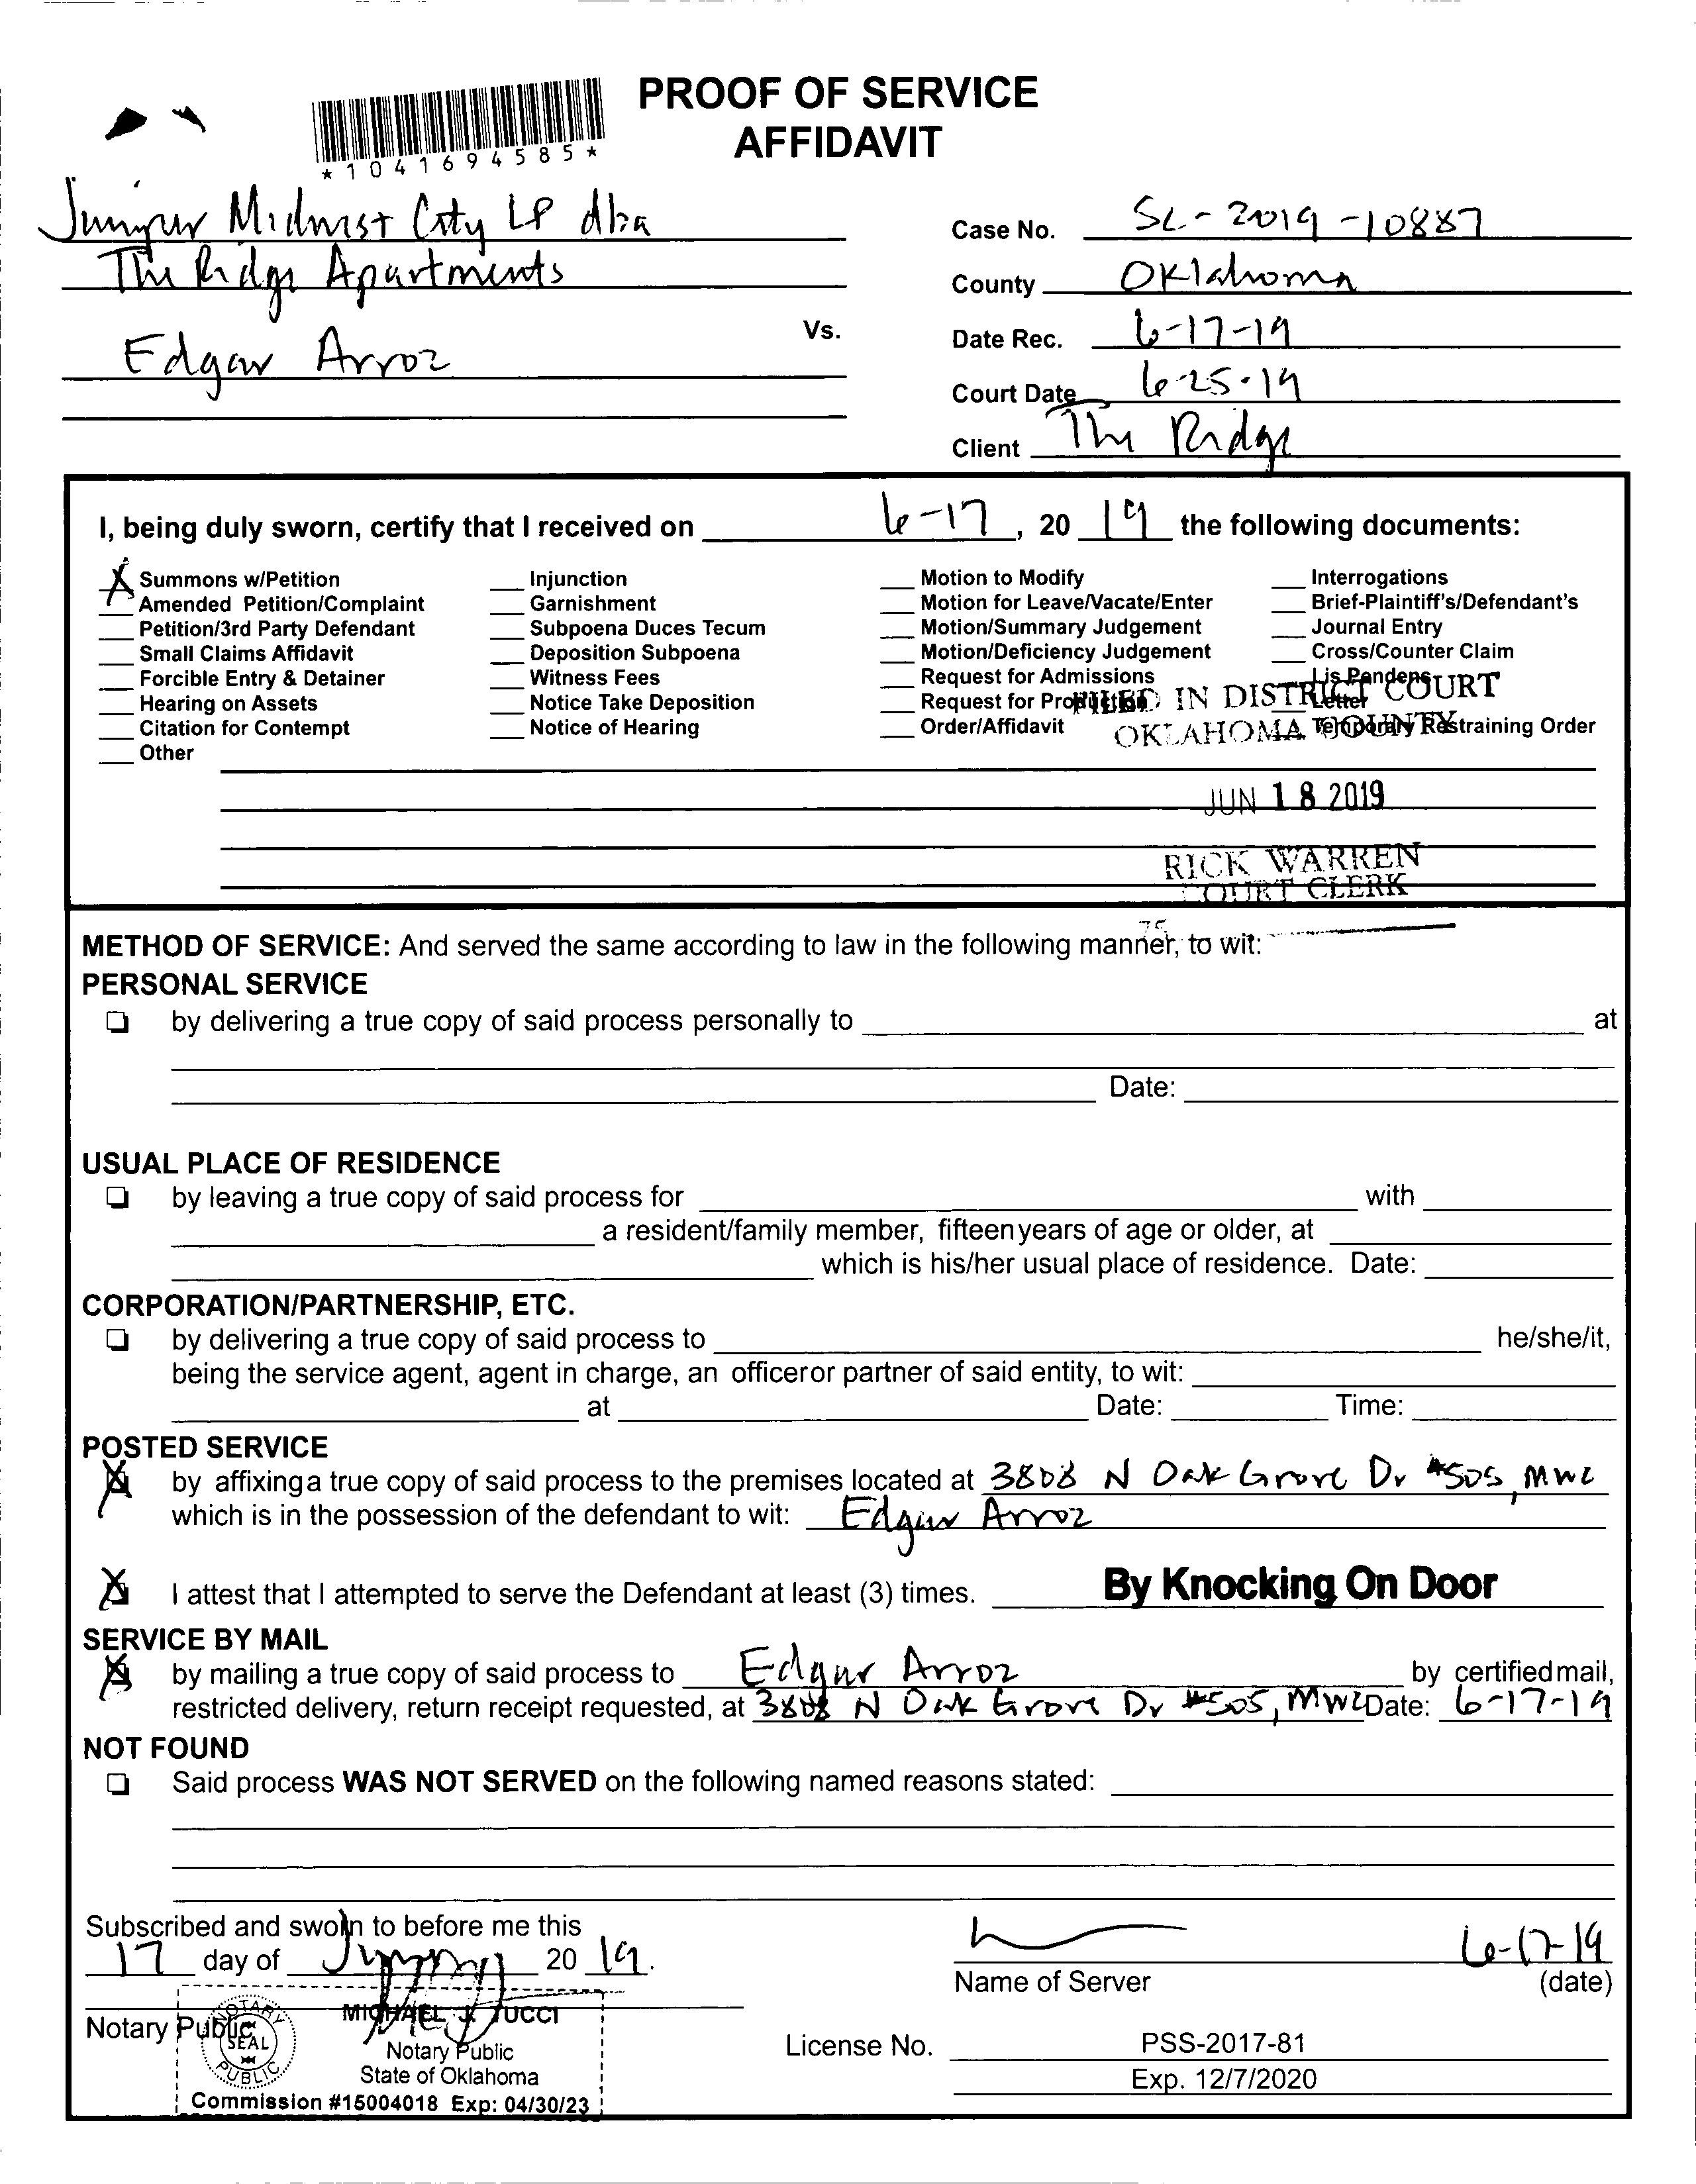 PROOF OF SERVICE
AFFIDAVIT
*1041694585*
Juniper Midwest City LP dba
The Ridge Apartments
Vs.
Edgar Arroz
Case No. SC-2019-10887
County Oklahoma
Date Rec. 6-17-19
Court Date 6-25-19
Client The Ridge
I, being duly sworn, certify that I received on 6-17, 20 19 the following documents:
X Summons w/Petition
Amended Petition/Complaint
Petition/3rd Party Defendant
Small Claims Affidavit
Forcible Entry & Detainer
Hearing on Assets
Citation for Contempt
Other
Injunction
Garnishment
Subpoena Duces Tecum
Deposition Subpoena
Witness Fees
Notice Take Deposition
Notice of Hearing
Motion to Modify
Motion for Leave/Vacate/Enter
Motion/Summary Judgement
Motion/Deficiency Judgement
Request for Admissions
Request for Production
Order/Affidavit
Interrogations
Brief-Plaintiff's/Defendant's
Journal Entry
Cross/Counter Claim
Lis Pendens
Letter
Temporary Restraining Order
FILED IN DISTRICT COURT
OKLAHOMA COUNTY
JUN 18 2019
RICK WARREN
COURT CLERK
75
METHOD OF SERVICE: And served the same according to law in the following manner, to wit:
PERSONAL SERVICE
by delivering a true copy of said process personally to at
Date:
USUAL PLACE OF RESIDENCE
by leaving a true copy of said process for with
a resident/family member, fifteen years of age or older, at
which is his/her usual place of residence. Date:
CORPORATION/PARTNERSHIP, ETC.
by delivering a true copy of said process to he/she/it,
being the service agent, agent in charge, an officer or partner of said entity, to wit:
at Date: Time:
POSTED SERVICE
X by affixing a true copy of said process to the premises located at 3808 N Oak Grove Dr #505, MWC
which is in the possession of the defendant to wit: Edgar Arroz
X I attest that I attempted to serve the Defendant at least (3) times. By Knocking On Door
SERVICE BY MAIL
X by mailing a true copy of said process to Edgar Arroz by certified mail,
restricted delivery, return receipt requested, at 3808 N Oak Grove Dr #505, MWC Date: 6-17-19
NOT FOUND
Said process WAS NOT SERVED on the following named reasons stated:
Subscribed and sworn to before me this
17 day of June 20 19.
Notary Public
NOTARY PUBLIC
SEAL
MICHAEL J. TUCCI
Notary Public
State of Oklahoma
Commission #15004018 Exp: 04/30/23
6-17-19
Name of Server (date)
License No. PSS-2017-81
Exp. 12/7/2020